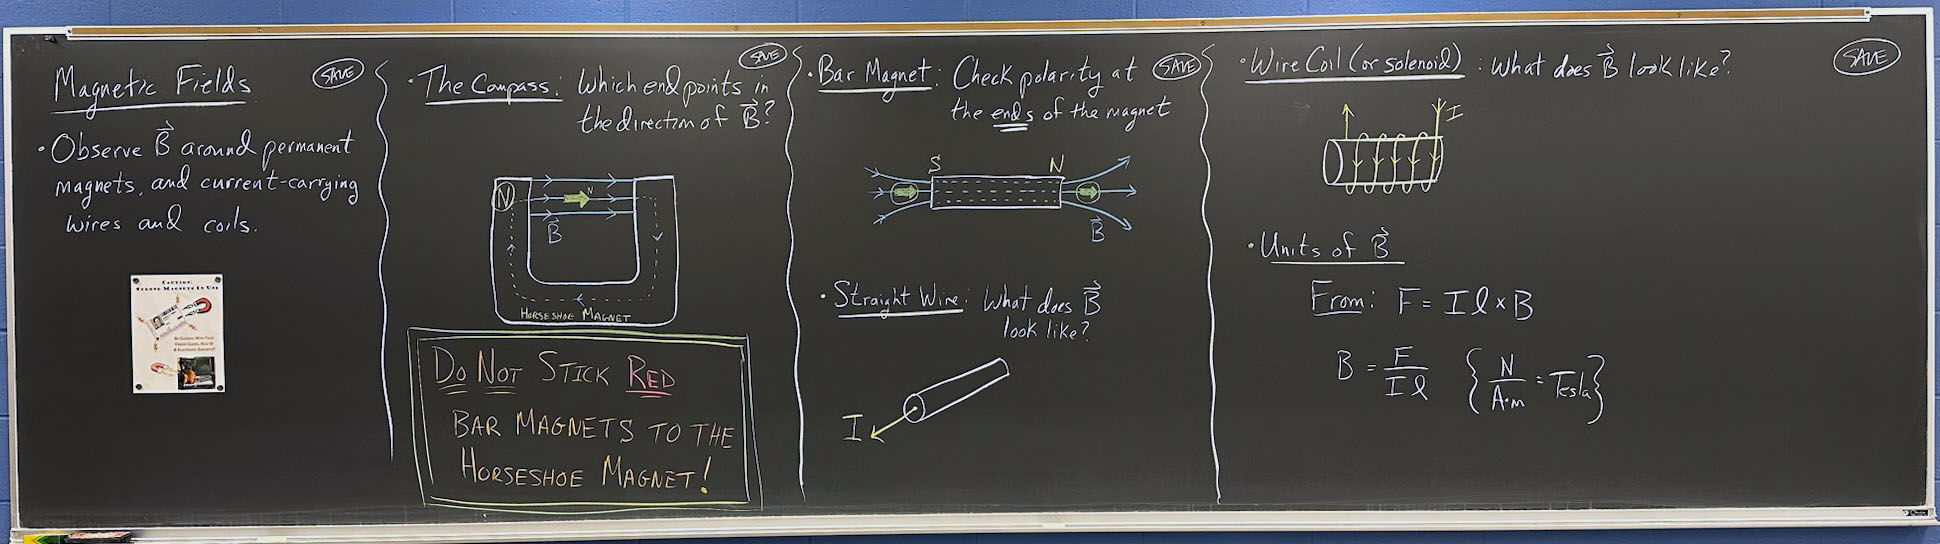 Magnetic Fields
SAVE
• Observe B⃗ around permanent
magnets, and current-carrying
wires and coils.
CAUTION:
STRONG MAGNETS IN USE
• The Compass: Which end points in
the direction of B⃗?
SAVE
N
N
B⃗
HORSESHOE MAGNET
DO NOT STICK RED
BAR MAGNETS TO THE
HORSESHOE MAGNET!
• Bar Magnet: Check polarity at
the ends of the magnet
SAVE
S N
B⃗
• Straight Wire: What does B⃗
look like?
I
• Wire Coil (or solenoid): What does B⃗ look like?
SAVE
I
• Units of B⃗
From: F = I l × B
B = F / I l { N / A·m = Tesla }